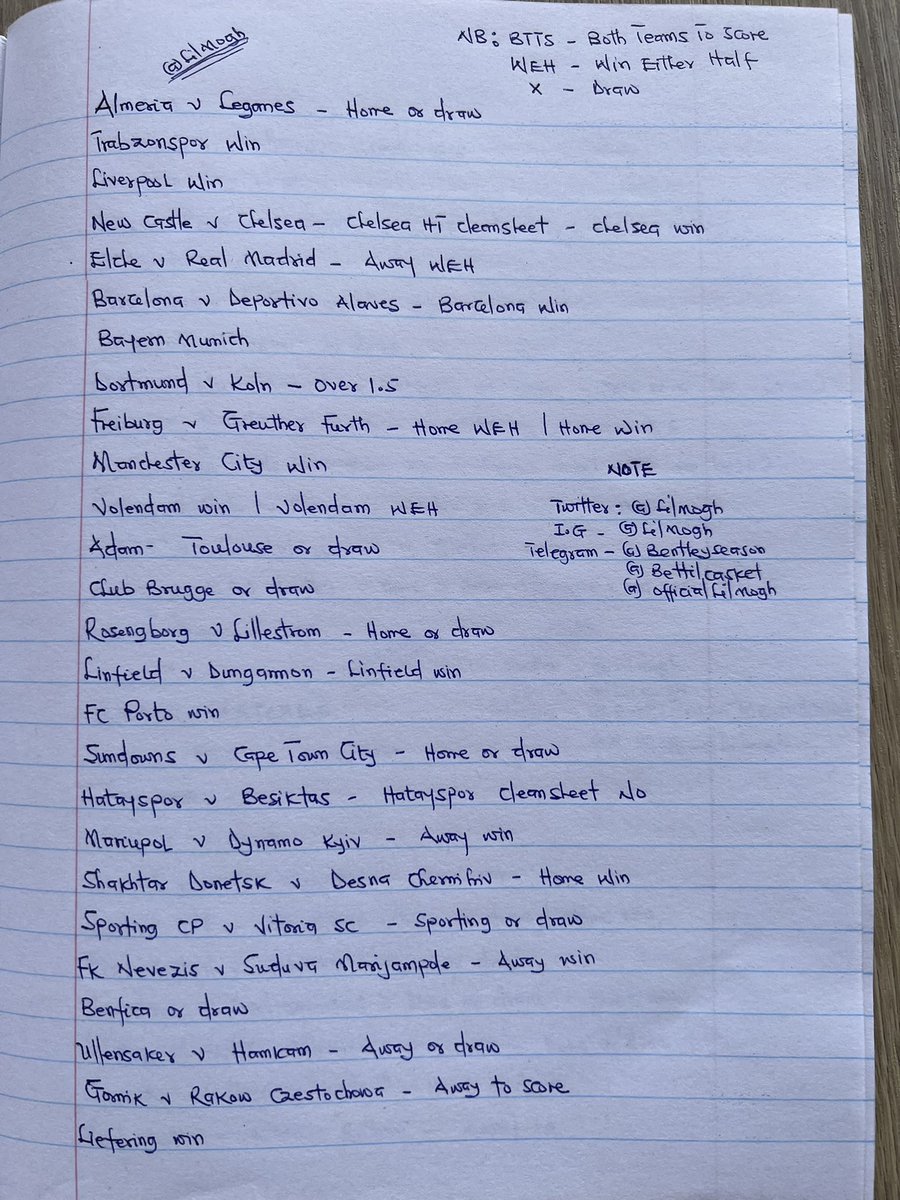 @LilMogh
NB: BTTS - Both Teams To Score
WEH - Win Either Half
X - Draw
Almeria v Leganes - Home or draw
Trabzonspor Win
Liverpool Win
New Castle v Chelsea - Chelsea HT cleansheet - Chelsea win
Elche v Real Madrid - Away WEH
Barcelona v Deportivo Alaves - Barcelona Win
Bayern Munich
Dortmund v Koln - Over 1.5
Freiburg v Greuther Furth - Home WEH | Home Win
Manchester City Win
NOTE
Volendam win | Volendam WEH
Twitter: @Lilmogh
I.G - @Lilmogh
Adam- Toulouse or draw
Telegram - @Bentleyseason
@Bettilcasket
Club Brugge or draw
@officialLilmogh
Rosengborg v Lillestrom - Home or draw
Linfield v Dungannon - Linfield win
FC Porto win
Sundowns v Cape Town City - Home or draw
Hatayspor v Besiktas - Hatayspor Cleansheet No
Mariupol v Dynamo Kyiv - Away win
Shakhtar Donetsk v Desna Chernihiv - Home Win
Sporting CP v Vitoria SC - Sporting or draw
FK Nevezis v Suduva Marijampole - Away win
Benfica or draw
Ullensaker v Hamkam - Away or draw
Gornik v Rakow Czestochowa - Away to score
Liefering win